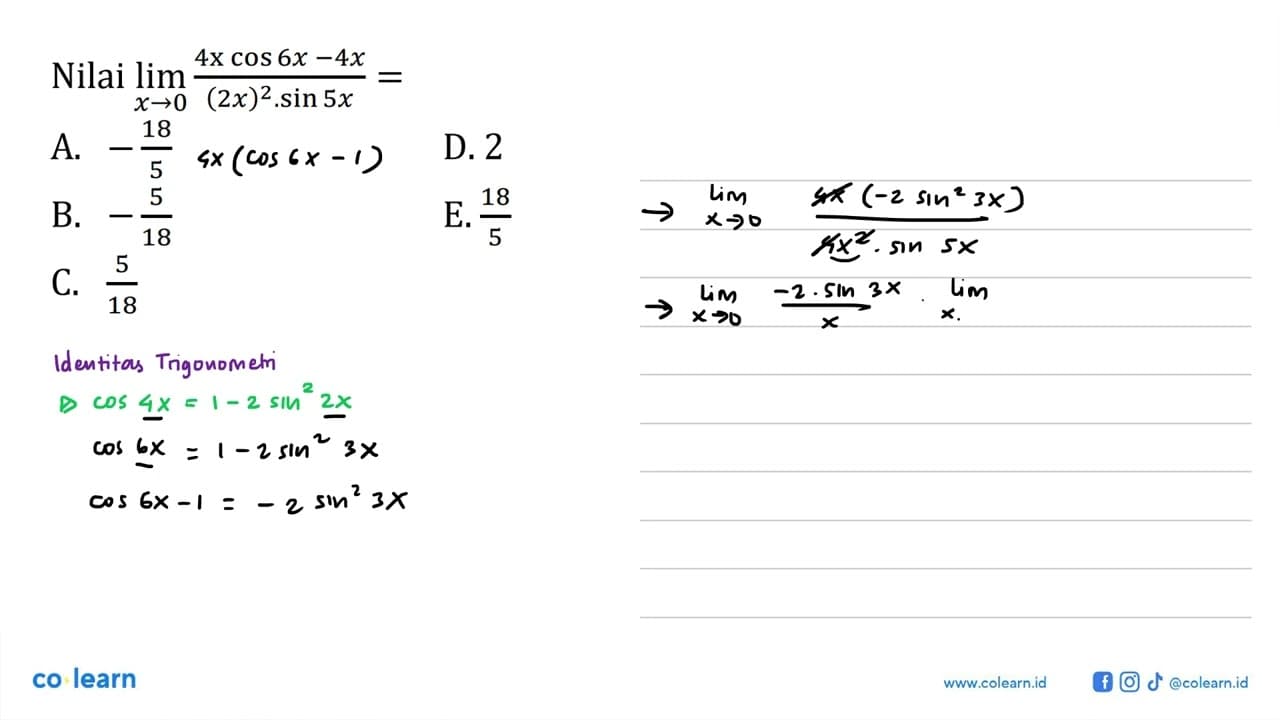 Nilai lim x→0 (4x cos 6x − 4x)/((2x)².sin 5x) =
A. −18/5
4x (cos 6x − 1)
D. 2
B. −5/18
E. 18/5
C. 5/18
Identitas Trigonometri
▷ cos 4x = 1 − 2 sin² 2x
cos 6x = 1 − 2 sin² 3x
cos 6x − 1 = − 2 sin² 3x
→ lim x→0 4x (−2 sin² 3x)/(4x² . sin 5x)
→ lim x→0 (−2 . sin 3x)/x . lim x.
co learn
www.colearn.id
@colearn.id